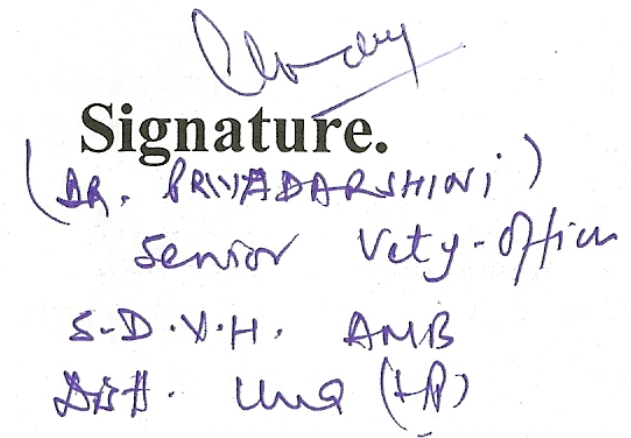 Signature.
(DR. PRIYADARSHINI)
Senior Vety-Officer
S.D.V.H. AMB
Distt. Una (HP)